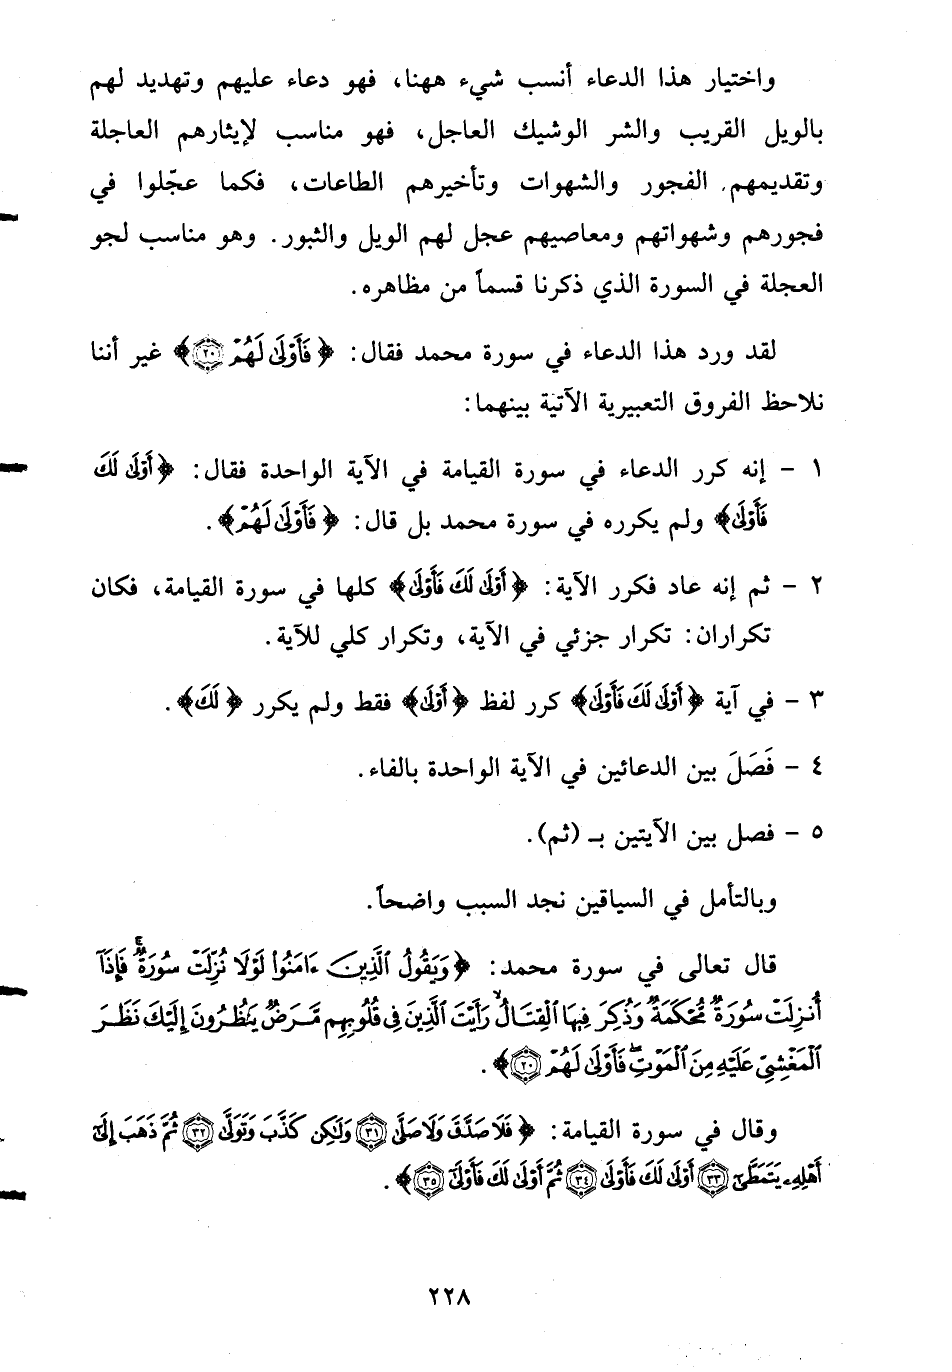 واختيار هذا الدعاء أنسب شيء ههنا، فهو دعاء عليهم وتهديد لهم
بالويل القريب والشر الوشيك العاجل، فهو مناسب لإيثارهم العاجلة
وتقديمهم الفجور والشهوات وتأخيرهم الطاعات، فكما عجّلوا في
فجورهم وشهواتهم ومعاصيهم عجل لهم الويل والثبور. وهو مناسب لجو
العجلة في السورة الذي ذكرنا قسماً من مظاهره.
لقد ورد هذا الدعاء في سورة محمد فقال: ﴿فَأَوْلَىٰ لَهُمْ ٢٠﴾ غير أننا
نلاحظ الفروق التعبيرية الآتية بينهما:
١ - إنه كرر الدعاء في سورة القيامة في الآية الواحدة فقال: ﴿أَوْلَىٰ لَكَ
فَأَوْلَىٰ﴾ ولم يكرره في سورة محمد بل قال: ﴿فَأَوْلَىٰ لَهُمْ﴾.
٢ - ثم إنه عاد فكرر الآية: ﴿أَوْلَىٰ لَكَ فَأَوْلَىٰ﴾ كلها في سورة القيامة، فكان
تكراران: تكرار جزئي في الآية، وتكرار كلي للآية.
٣ - في آية ﴿أَوْلَىٰ لَكَ فَأَوْلَىٰ﴾ كرر لفظ ﴿أَوْلَىٰ﴾ فقط ولم يكرر ﴿لَكَ﴾.
٤ - فَصَلَ بين الدعائين في الآية الواحدة بالفاء.
٥ - فصل بين الآيتين بـ (ثم).
وبالتأمل في السياقين نجد السبب واضحاً.
قال تعالى في سورة محمد: ﴿وَيَقُولُ ٱلَّذِينَ ءَامَنُوا۟ لَوْلَا نُزِّلَتْ سُورَةٌ ۖ فَإِذَآ
أُنزِلَتْ سُورَةٌ مُّحْكَمَةٌ وَذُكِرَ فِيهَا ٱلْقِتَالُ ۙ رَأَيْتَ ٱلَّذِينَ فِى قُلُوبِهِم مَّرَضٌ يَنظُرُونَ إِلَيْكَ نَظَرَ
ٱلْمَغْشِىِّ عَلَيْهِ مِنَ ٱلْمَوْتِ ۖ فَأَوْلَىٰ لَهُمْ ٢٠﴾.
وقال في سورة القيامة: ﴿فَلَا صَدَّقَ وَلَا صَلَّىٰ ٣١ وَلَٰكِن كَذَّبَ وَتَوَلَّىٰ ٣٢ ثُمَّ ذَهَبَ إِلَىٰٓ
أَهْلِهِۦ يَتَمَطَّىٰٓ ٣٣ أَوْلَىٰ لَكَ فَأَوْلَىٰ ٣٤ ثُمَّ أَوْلَىٰ لَكَ فَأَوْلَىٰٓ ٣٥﴾.
٢٢٨